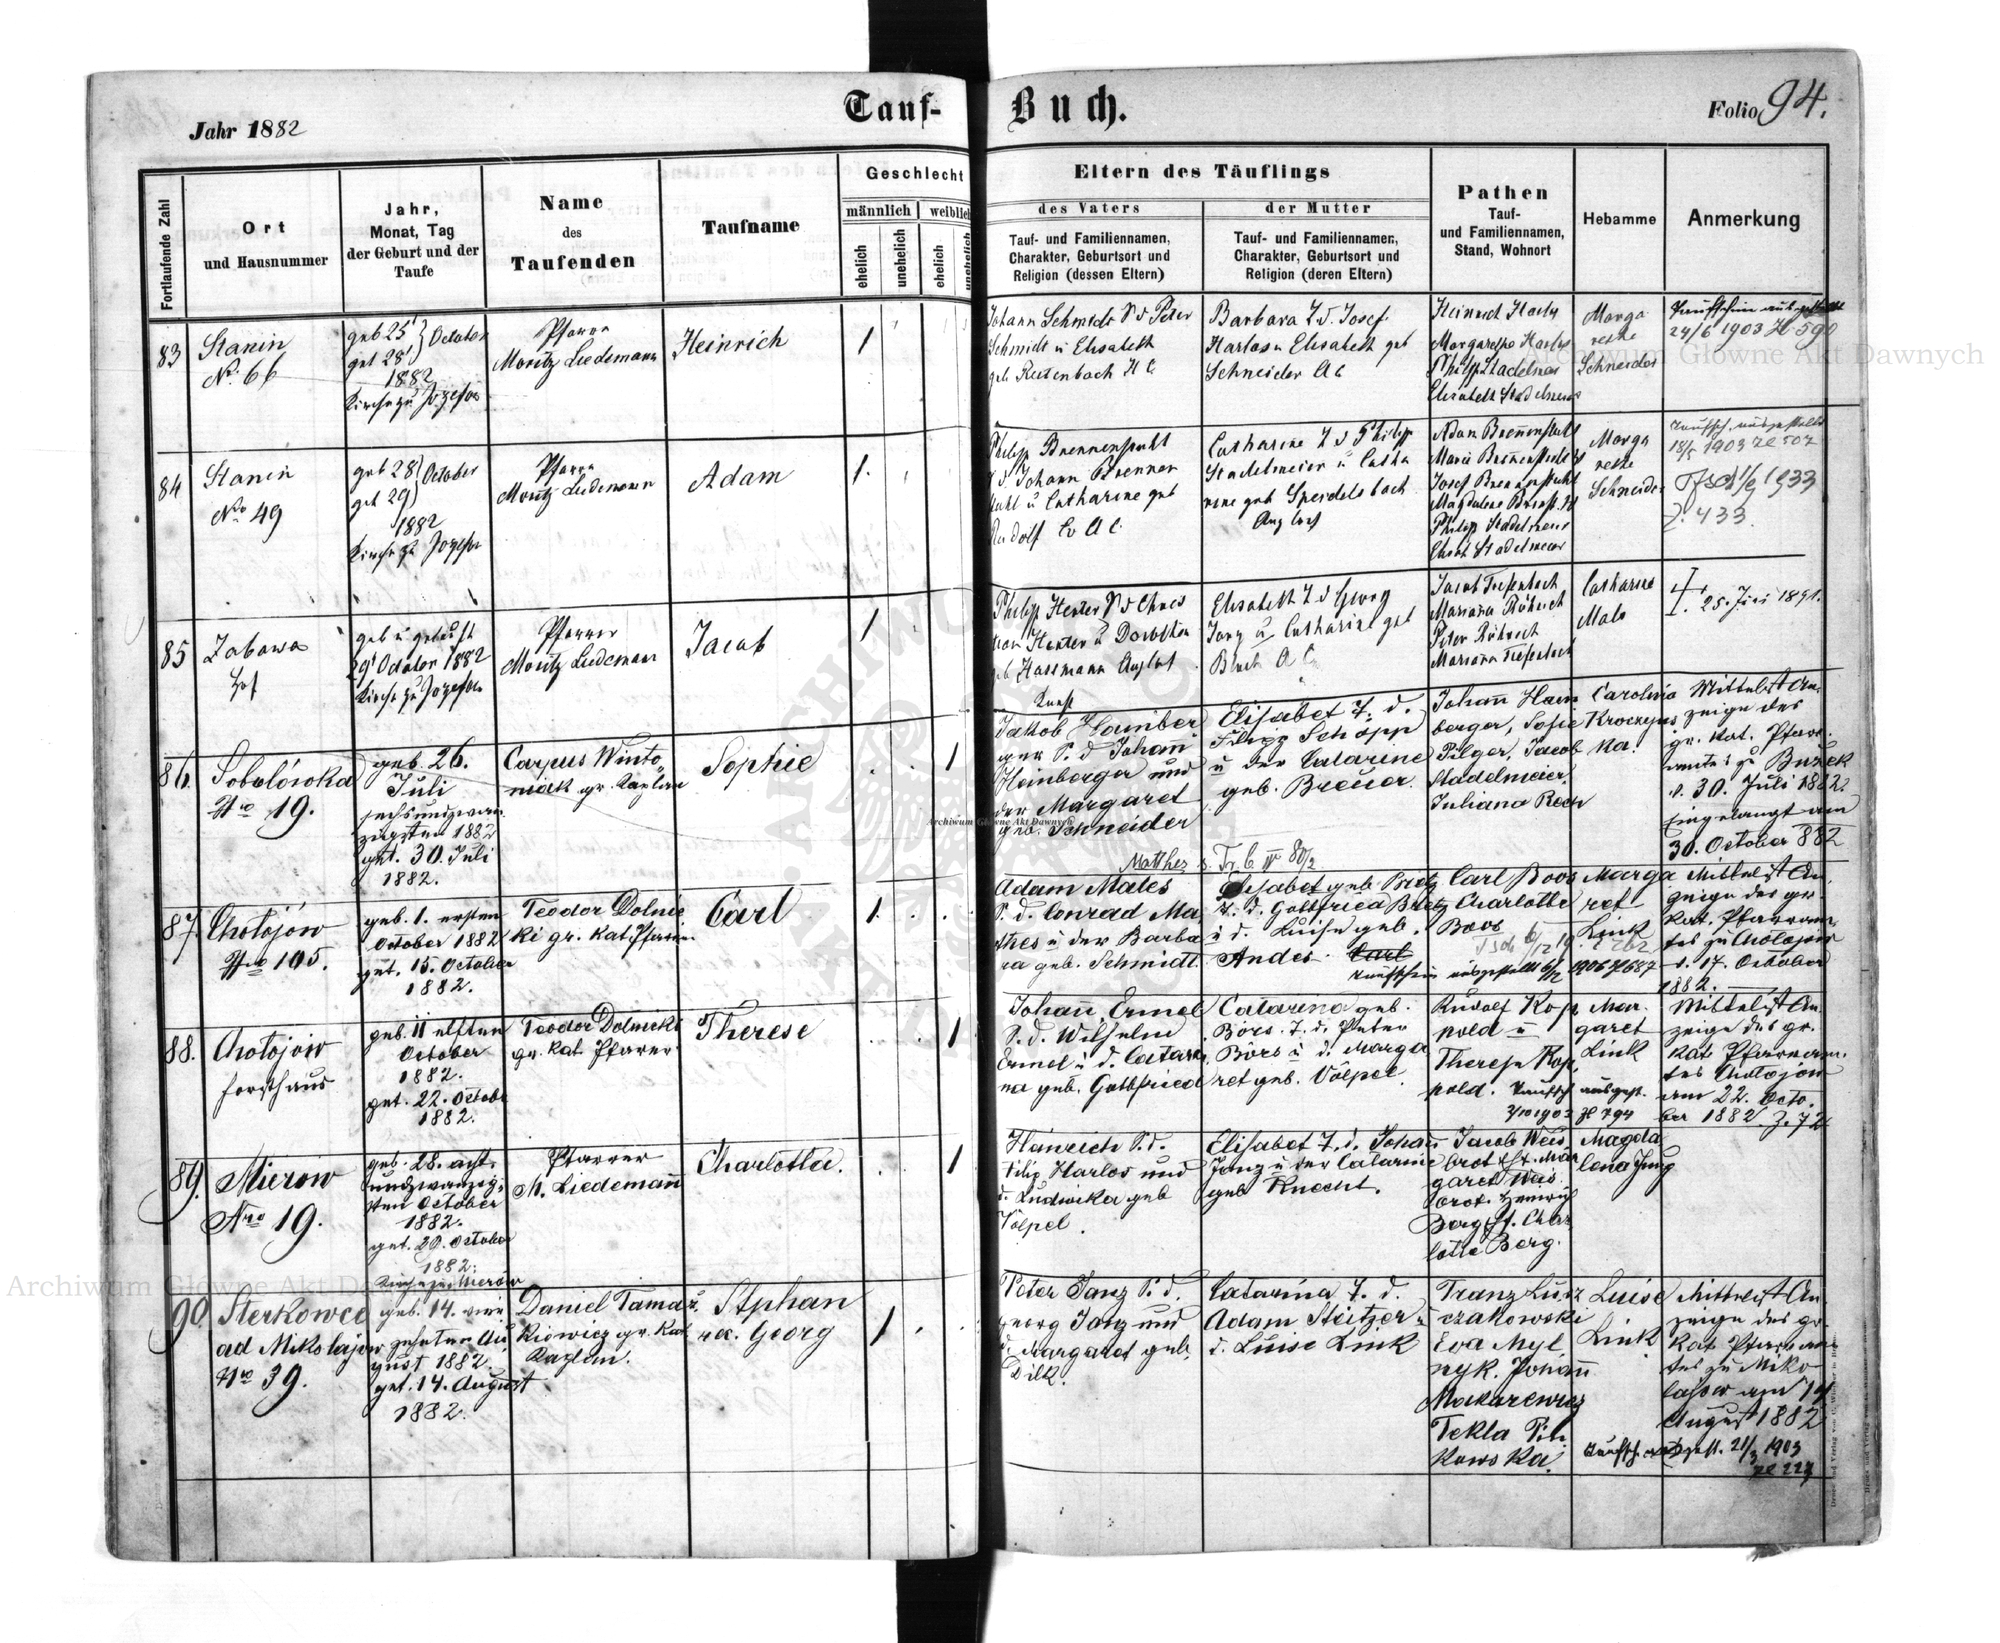 Tauf-
Buch.
Jahr 1882
Folio 94.
Fortlaufende Zahl
Ort
und Hausnummer
Jahr,
Monat, Tag
der Geburt und der
Taufe
Name
des
Taufenden
Taufname
Geschlecht
männlich
weiblich
ehelich
unehelich
ehelich
unehelich
Eltern des Täuflings
des Vaters
der Mutter
Tauf- und Familiennamen,
Charakter, Geburtsort und
Religion (dessen Eltern)
Tauf- und Familiennamen,
Charakter, Geburtsort und
Religion (deren Eltern)
Pathen
Tauf-
und Familiennamen,
Stand, Wohnort
Hebamme
Anmerkung
83
Stanin
No. 66
geb 25 October
get 28
1882
Kirche zu
Pfarrer
Moritz Liedemann
Heinrich
1
Johann Schmidt S d Peter
Schmidt u Elisabeth
geb Reitenbach H C
Barbara T d. Josef
Harlos u Elisabeth geb
Schneider AC
Heinrich Harlos
Margaretha Harlos
Philipp Stadelmeier
Elisabeth Stadelmeier
Marga
rethe
Schneider
Taufschein ausgestellt
24/6 1903 Zl 590
84
Stanin
No 49
geb 28 October
get 29
1882
Kirche zu
Pfarrer
Moritz Liedemann
Adam
1.
Philipp Brennenstuhl
S d Johann Brennen
stuhl u Catharine geb
Rudolf Ev AC
Catharine T d Philipp
Stadelmeier u Catha
rine geb Speidelsbach
Adam Brennenstuhl
Marie Brennenstuhl
Josef Brennenstuhl
Philipp Stadelmeier
Elisab Stadelmeier
Marga
rethe
Schneider
Taufsch. ausgestellt
18/5 1903 Zl 507
1933
Z. 433.
85
Zabawa
Hof
geb u getauft
29 October 1882
Kirche zu
Pfarrer
Moritz Liedemann
Jacob
1
Philipp Hexter S d Chris
tian Hexter u Dorothea
geb Hassmann
Elisabeth T d Georg
Jung u Catharine geb
AC
Jacob Tiefenbach
Marianna Röhrich
Peter Röhrich
Marianna Tiefenbach
Catharine
25. Juni 1891.
86.
Sobolówka
Nro 19.
geb. 26.
Juli
sechsundzwan
zigsten 1882
get. 30. Juli
1882.
Carpus Winto
niak gr. Kaplan
Sophie
1
Jakob Hamber
ger S. d Johan
Hamberger und
der Margaret
geb. Schneider
Elisabet T. d.
Filipp Schöpp
u der Catarine
geb. Breuer
Johann Ham
berger, Sofie
Pilger, Jacob
Stadelmeier,
Juliana Rech
Carolina
Kroczyns
ka.
Mittelst An
zeige des
gr. kat. Pfarr
amtes zu Buzek
v. 30. Juli 1882.
Eingelangt am
30. October 882
87.
Chotojów
Nro 105.
geb. 1. ersten
October 1882
get. 15. October
1882.
Teodor Dolnic
ki gr. kat. Pfarrer
Carl
1.
Matthes
Adam Mates
S. d. Conrad Ma
thes u der Barba
ra geb. Schmidt.
Elisabet geb Bretz
T. d. Gottfried Bretz
u d. Luise geb.
Andes.
Carl Boos
Charlotte
Boos
Marga
ret
Link
Taufschein ausgestellt 6/12 1906 Zl 687
Mittelst An
zeige des gr.
kat. Pfarram
tes zu Chotojów
v. 17. October
1882.
88.
Chotojów
Forsthaus
geb. 11 elften
October
1882.
get. 22. October
1882.
Teodor Dolnicki
gr. kat. Pfarrer
Therese
1
Johann Ermel
S. d. Wilhelm
Ermel u. d. Catari
na geb. Gottfried
Catarina geb.
Börs. T. d. Peter
Börs u d. Marga
ret geb. Völpel.
Rudolf Kop
pold u
Therese Kop
pold.
Mar
garet
Link
Taufsch ausgest.
1903 Zl 794
Mittelst An
zeige des gr.
kat. Pfarram
tes Chotojow
am 22. Octo
ber 1882 Z. 72
89.
Mierow
Nro 19.
geb. 28. acht
undzwanzig
sten October
1882.
get. 29. October
1882.
Kirche zu Mierów
Pfarrer
M. Liedemann
Charlotta.
1
Heinrich S. d.
Filip Harlos und
d. Ludwika geb
Völpel.
Elisabet T. d. Johann
Janz u der Catarine
geb Knecht.
Jacob Weis
brot Mar
garet Weis
brot. Heinrich
Berg Char
lotte Berg.
Magda
lena Jung
90.
Sterkowce
ad Mikolajow
Nro 39.
geb. 14. vier
zehnten Au
gust 1882.
get. 14. August
1882.
Daniel Tamaz
kiewicz gr. Kat
Kaplan.
Stphan
Georg
1
Peter Janz S. d.
Georg Janz und
d. Margaret geb.
Dilk.
Catarina T. d.
Adam Steitzer u
d. Luise Link
Franz Lusz
czakowski
Eva Myl
nyk. Johann
Makarewicz
Tekla Pil
kowska.
Luise
Link
Mittelst An
zeige des gr
kat. Pfarram
tes zu Miko
lajow am 14
August 1882
Taufsch. ausgest. 21/3 1903
Zl 227
Archiwum Główne Akt Dawnych
Archiwum Główne Akt Dawnych
Archiwum Główne Akt Dawnych